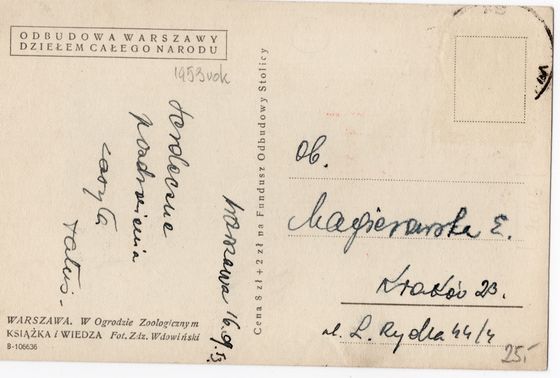 ODBUDOWA WARSZAWY
DZIEŁEM CAŁEGO NARODU
1953 rok
Serdeczne
pozdrowienia
zasyła
Tatuś.
Warszawa 16.9.53
Cena 8 zł + 2 zł na Fundusz Odbudowy Stolicy
Ob.
Magierowska E.
Kraków 23.
ul. L. Rydla 44/4
25.-
WARSZAWA. W Ogrodzie Zoologicznym
KSIĄŻKA i WIEDZA Fot. Zdz. Wdowiński
B-106636